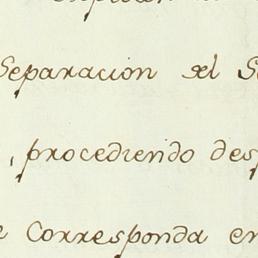 Separacion del S
, procediendo des
e Corresponda en